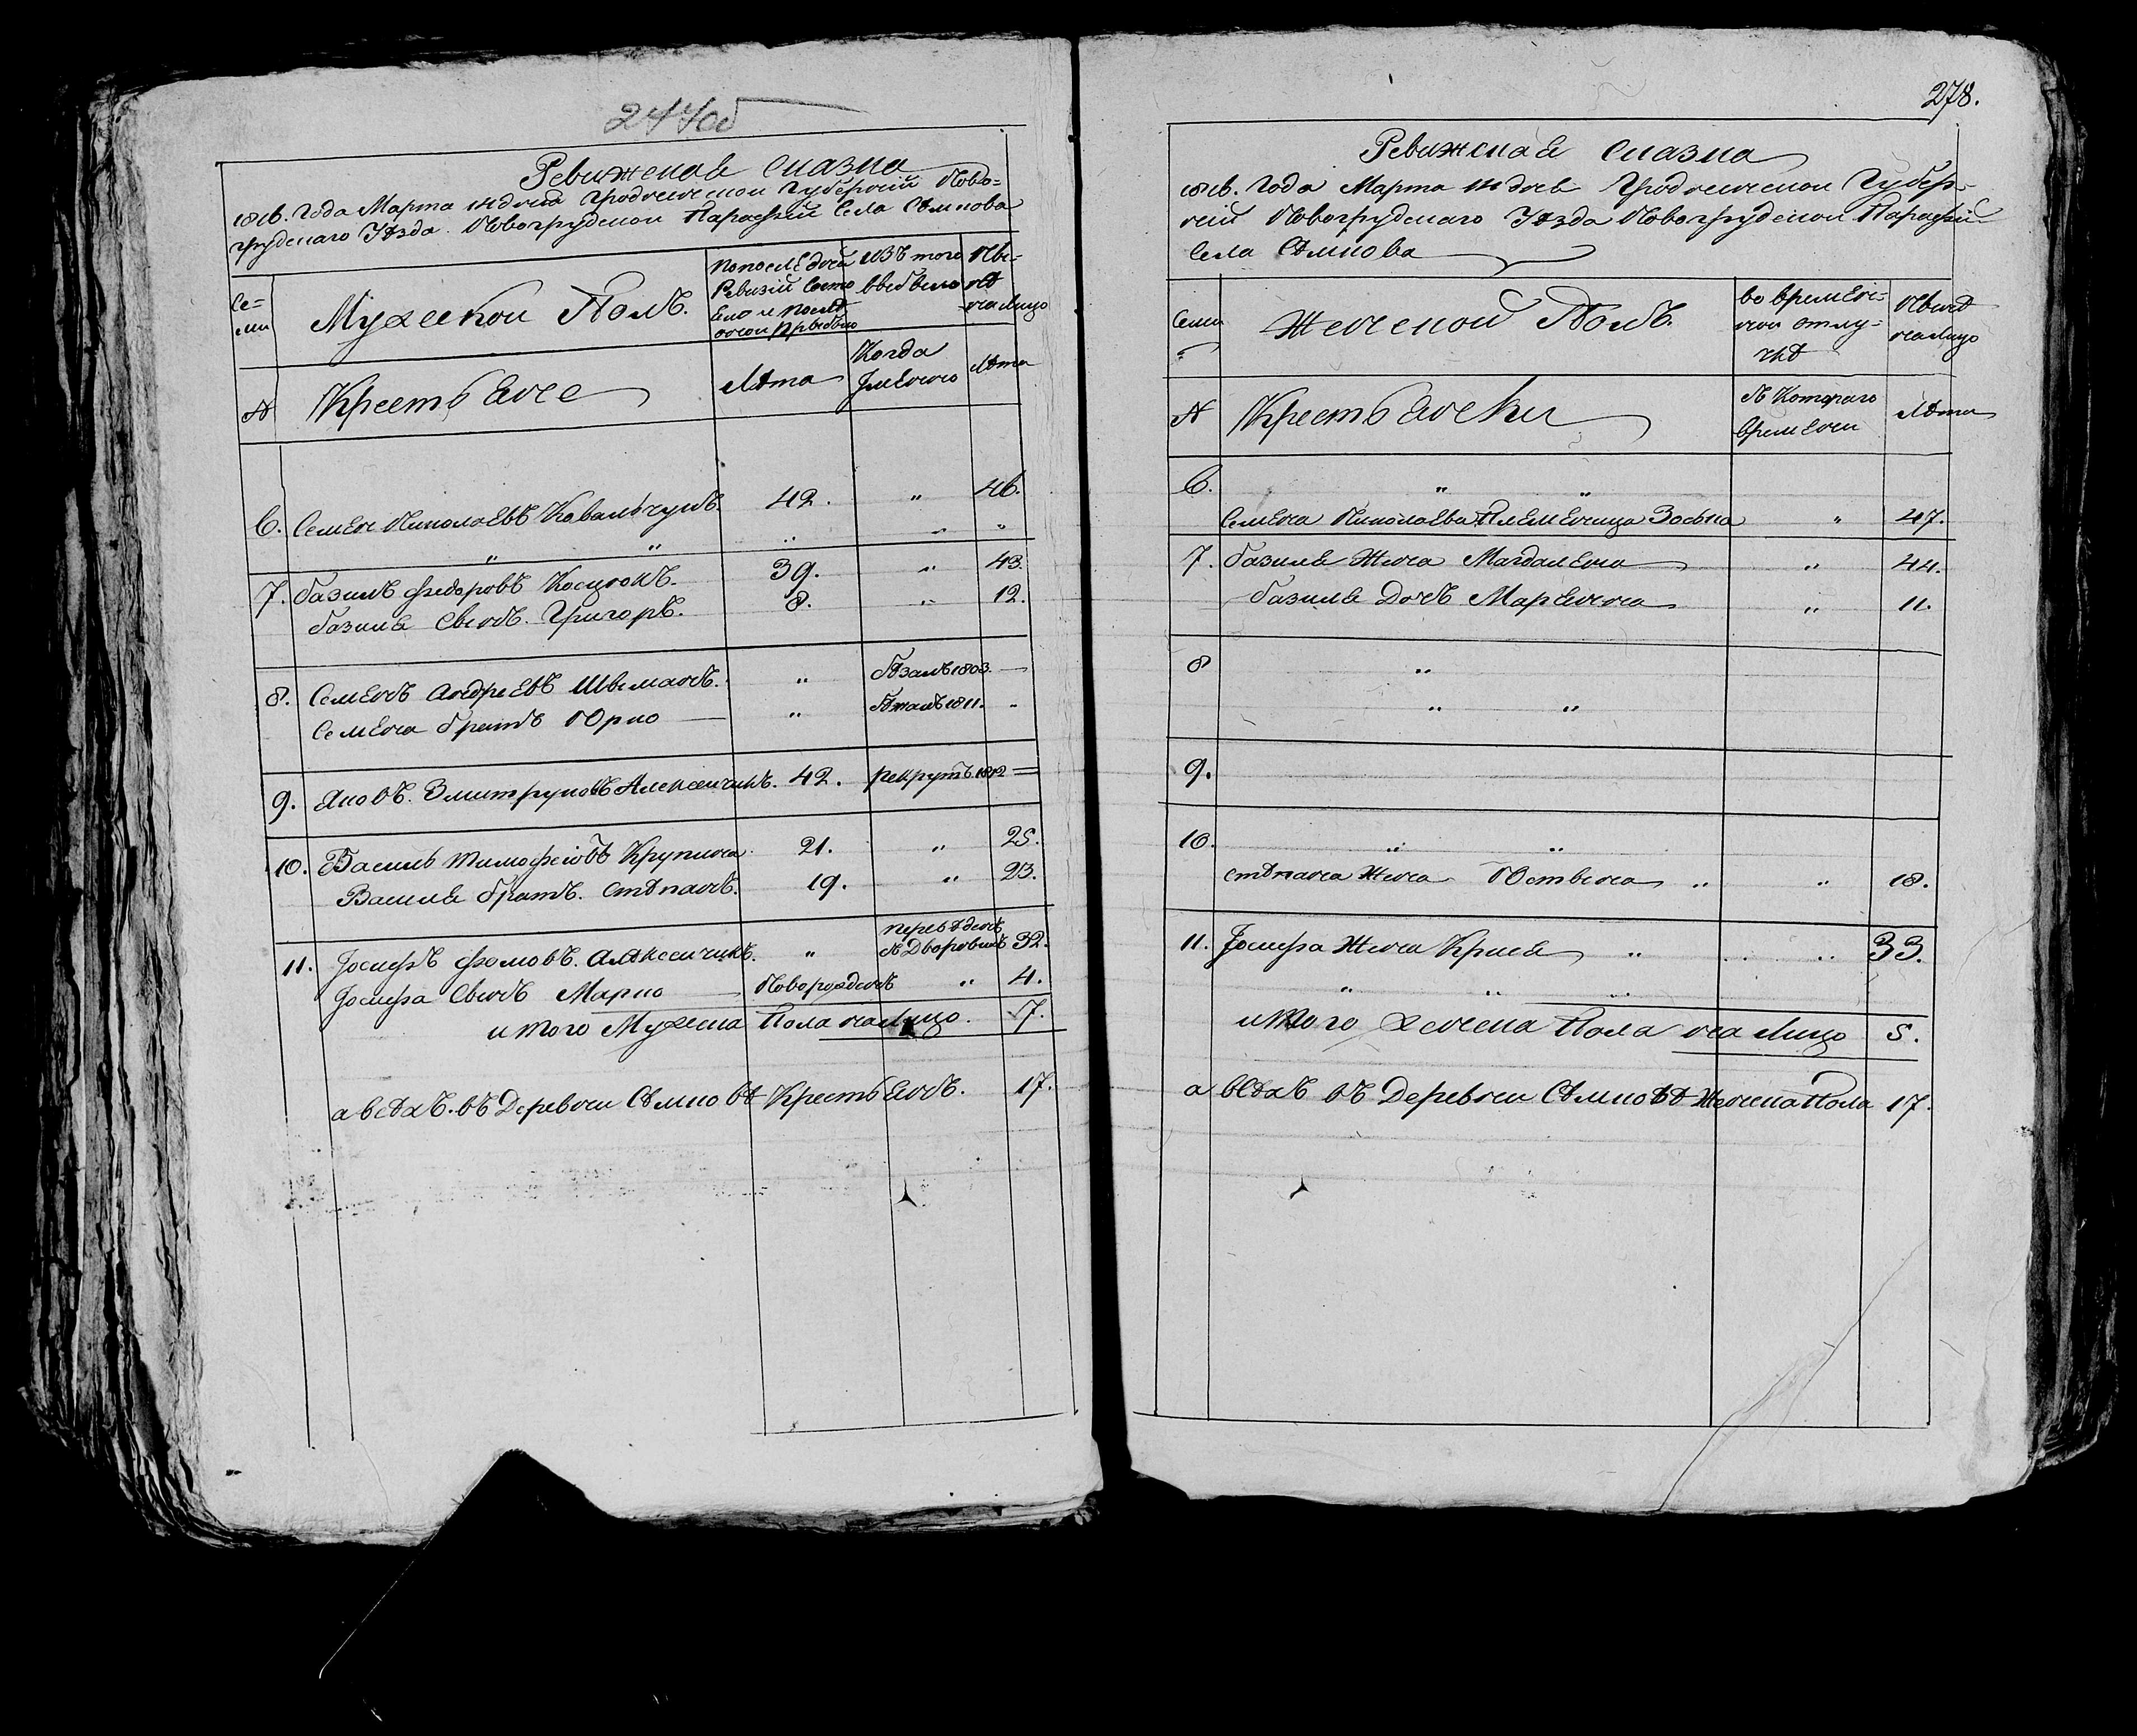 244об
Ревижская сказка
1816. Года Марта дня Гродненской Губерній Ново=
грудскаго Уѣзда Новогрудской Парафіи Села Сѣлкова
Се=
ми
Мужеской Полъ.
по последней
Ревизій Состо
яло и послѣ
оной прибыло
изъ того
выбыло
Ны=
нѣ
на лицо
№
Крестьяне
Лѣта
Когда
Именно
Лѣта
6. Семен Николаевъ Ковальчукъ. 42. " 46.
" " " " "
7. Базилъ Федоровъ Косцюкъ. 39. " 43.
Базиля Сынъ. Григоръ. 8. " 12.
8. Семенъ Андреевъ Швеманъ. " бѣжалъ 1803. —
Семена братъ Юрко — " бѣжалъ 1811. "
9. Яковъ. Змитруковъ Алексейчикъ. 42. рекрутъ. 1812 —
10. Василь Тимофеіовъ Крупина 21. " 25.
Василя братъ. Стѣпанъ. 19. " 23.
11. Іосифъ Фомовъ. Алѣксейчикъ. " переведенъ
съ Дворовыхъ 32.
Іосифа Сынъ Марко — Новорожденъ " 4.
итого Мужска Пола на лицо. 7.
а всѣхъ. въ Деревни Сѣлковѣ Крестьянъ. 17.
278.
Ревижская сказка
1816. Года Марта дня Гродненской Губер-
ній Новогрудскаго Уѣзда Новогрудской Парафіи
Села Сѣлкова
Семи
Женской Полъ.
во времен-
ной отлу-
чкѣ
Нынѣ
на лицо
№
Крестьянки
Съ Котораго
времени
Лѣта
6. " "
Семена Николаева Племенница Зоська " 47.
7. Базиля Жена Магдалена " 44.
Базиля Дочъ Марьяна " 11.
8 "
" "
9.
10. " "
Стѣпана Жена Юстына " " 18.
11. Іосифа Жена Крися " " 33.
" " "
итого женска Пола на лицо 5.
а всѣхъ въ Деревни Сѣлковѣ Женска Пола 17.